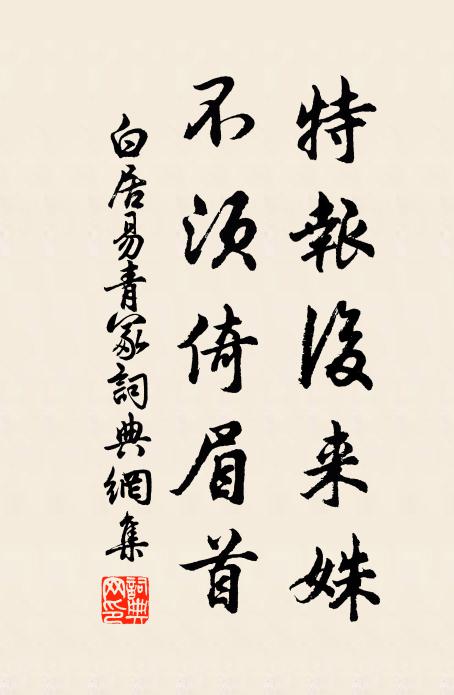 特報後来姝
不須倚眉首
白居易青冢詞典網集
詞典網印